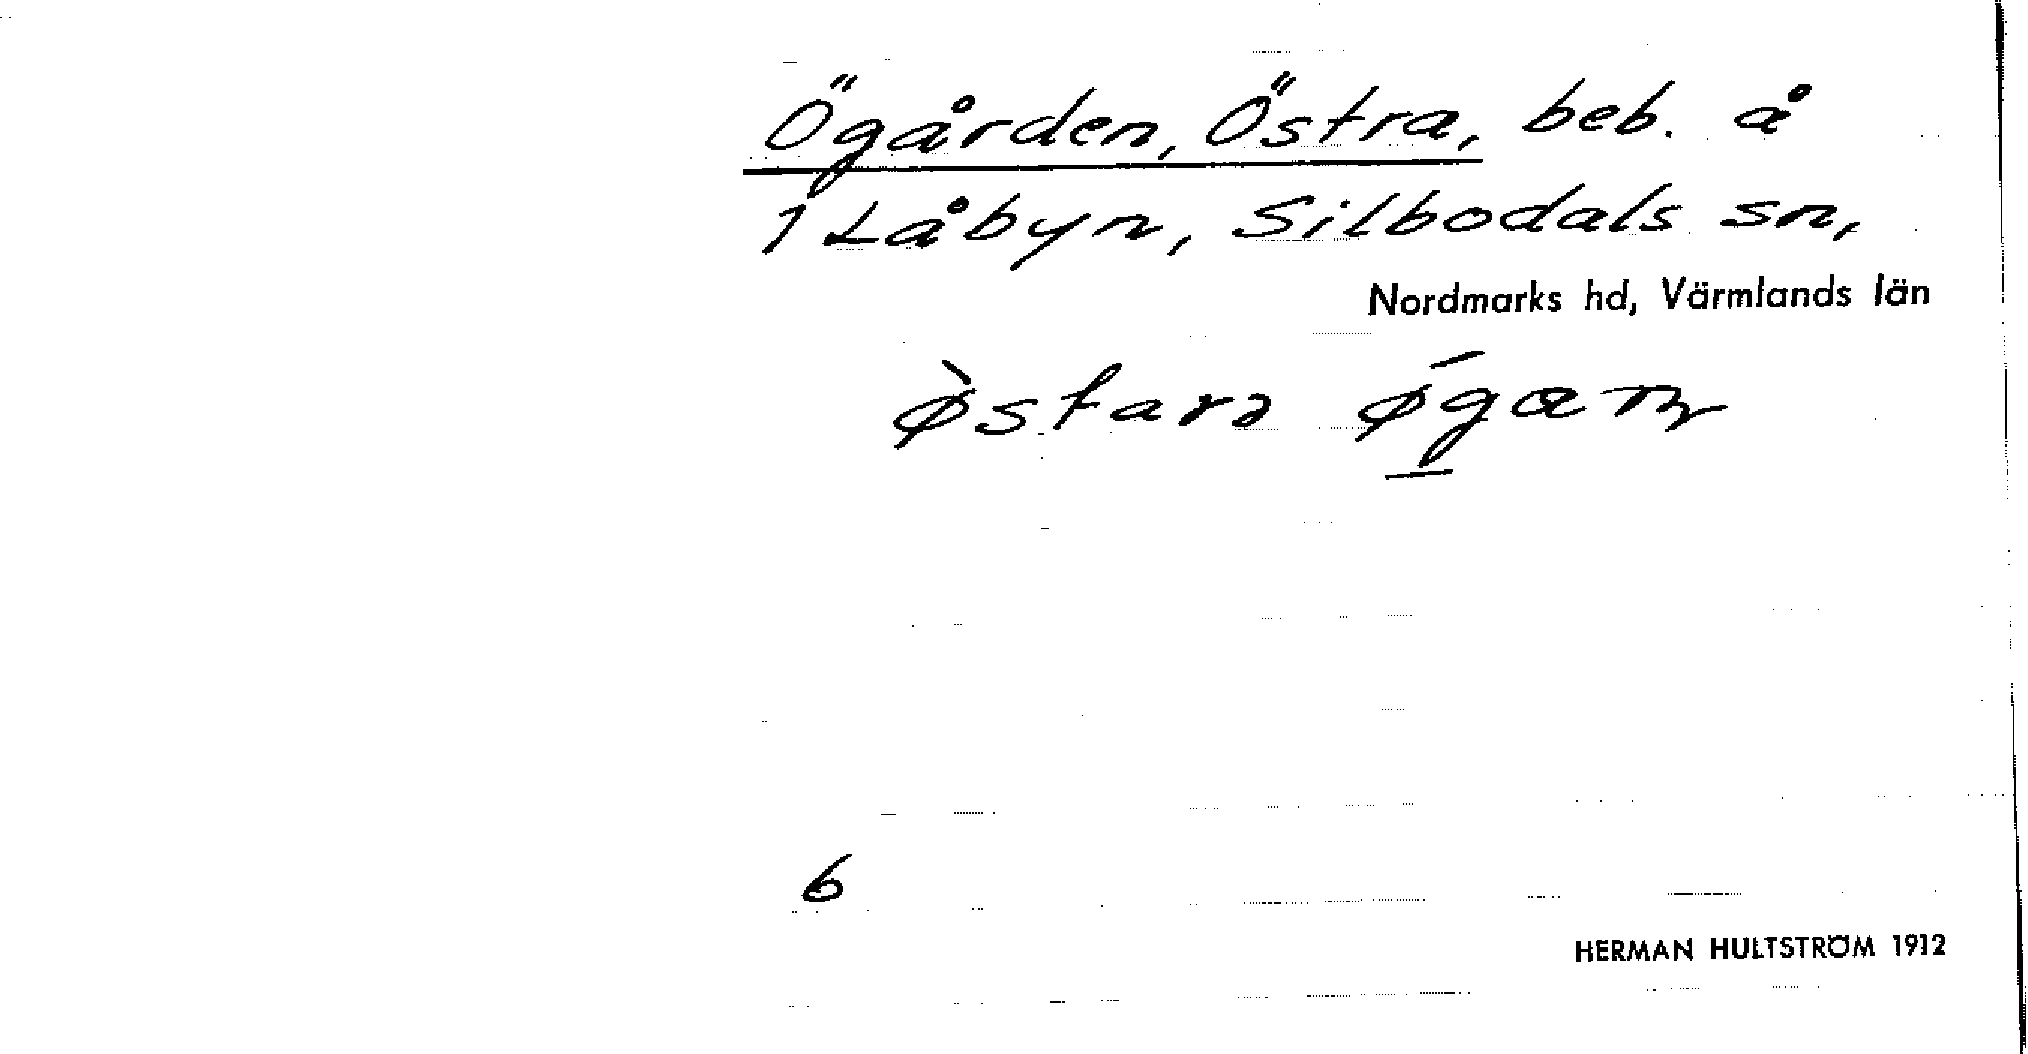 Ögården, Östra, beb. å
1 Låbyn, Silbodals sn,
Nordmarks hd, Värmlands län
ø̀starə ǿgæɳ
6
HERMAN HULTSTRÖM 1912